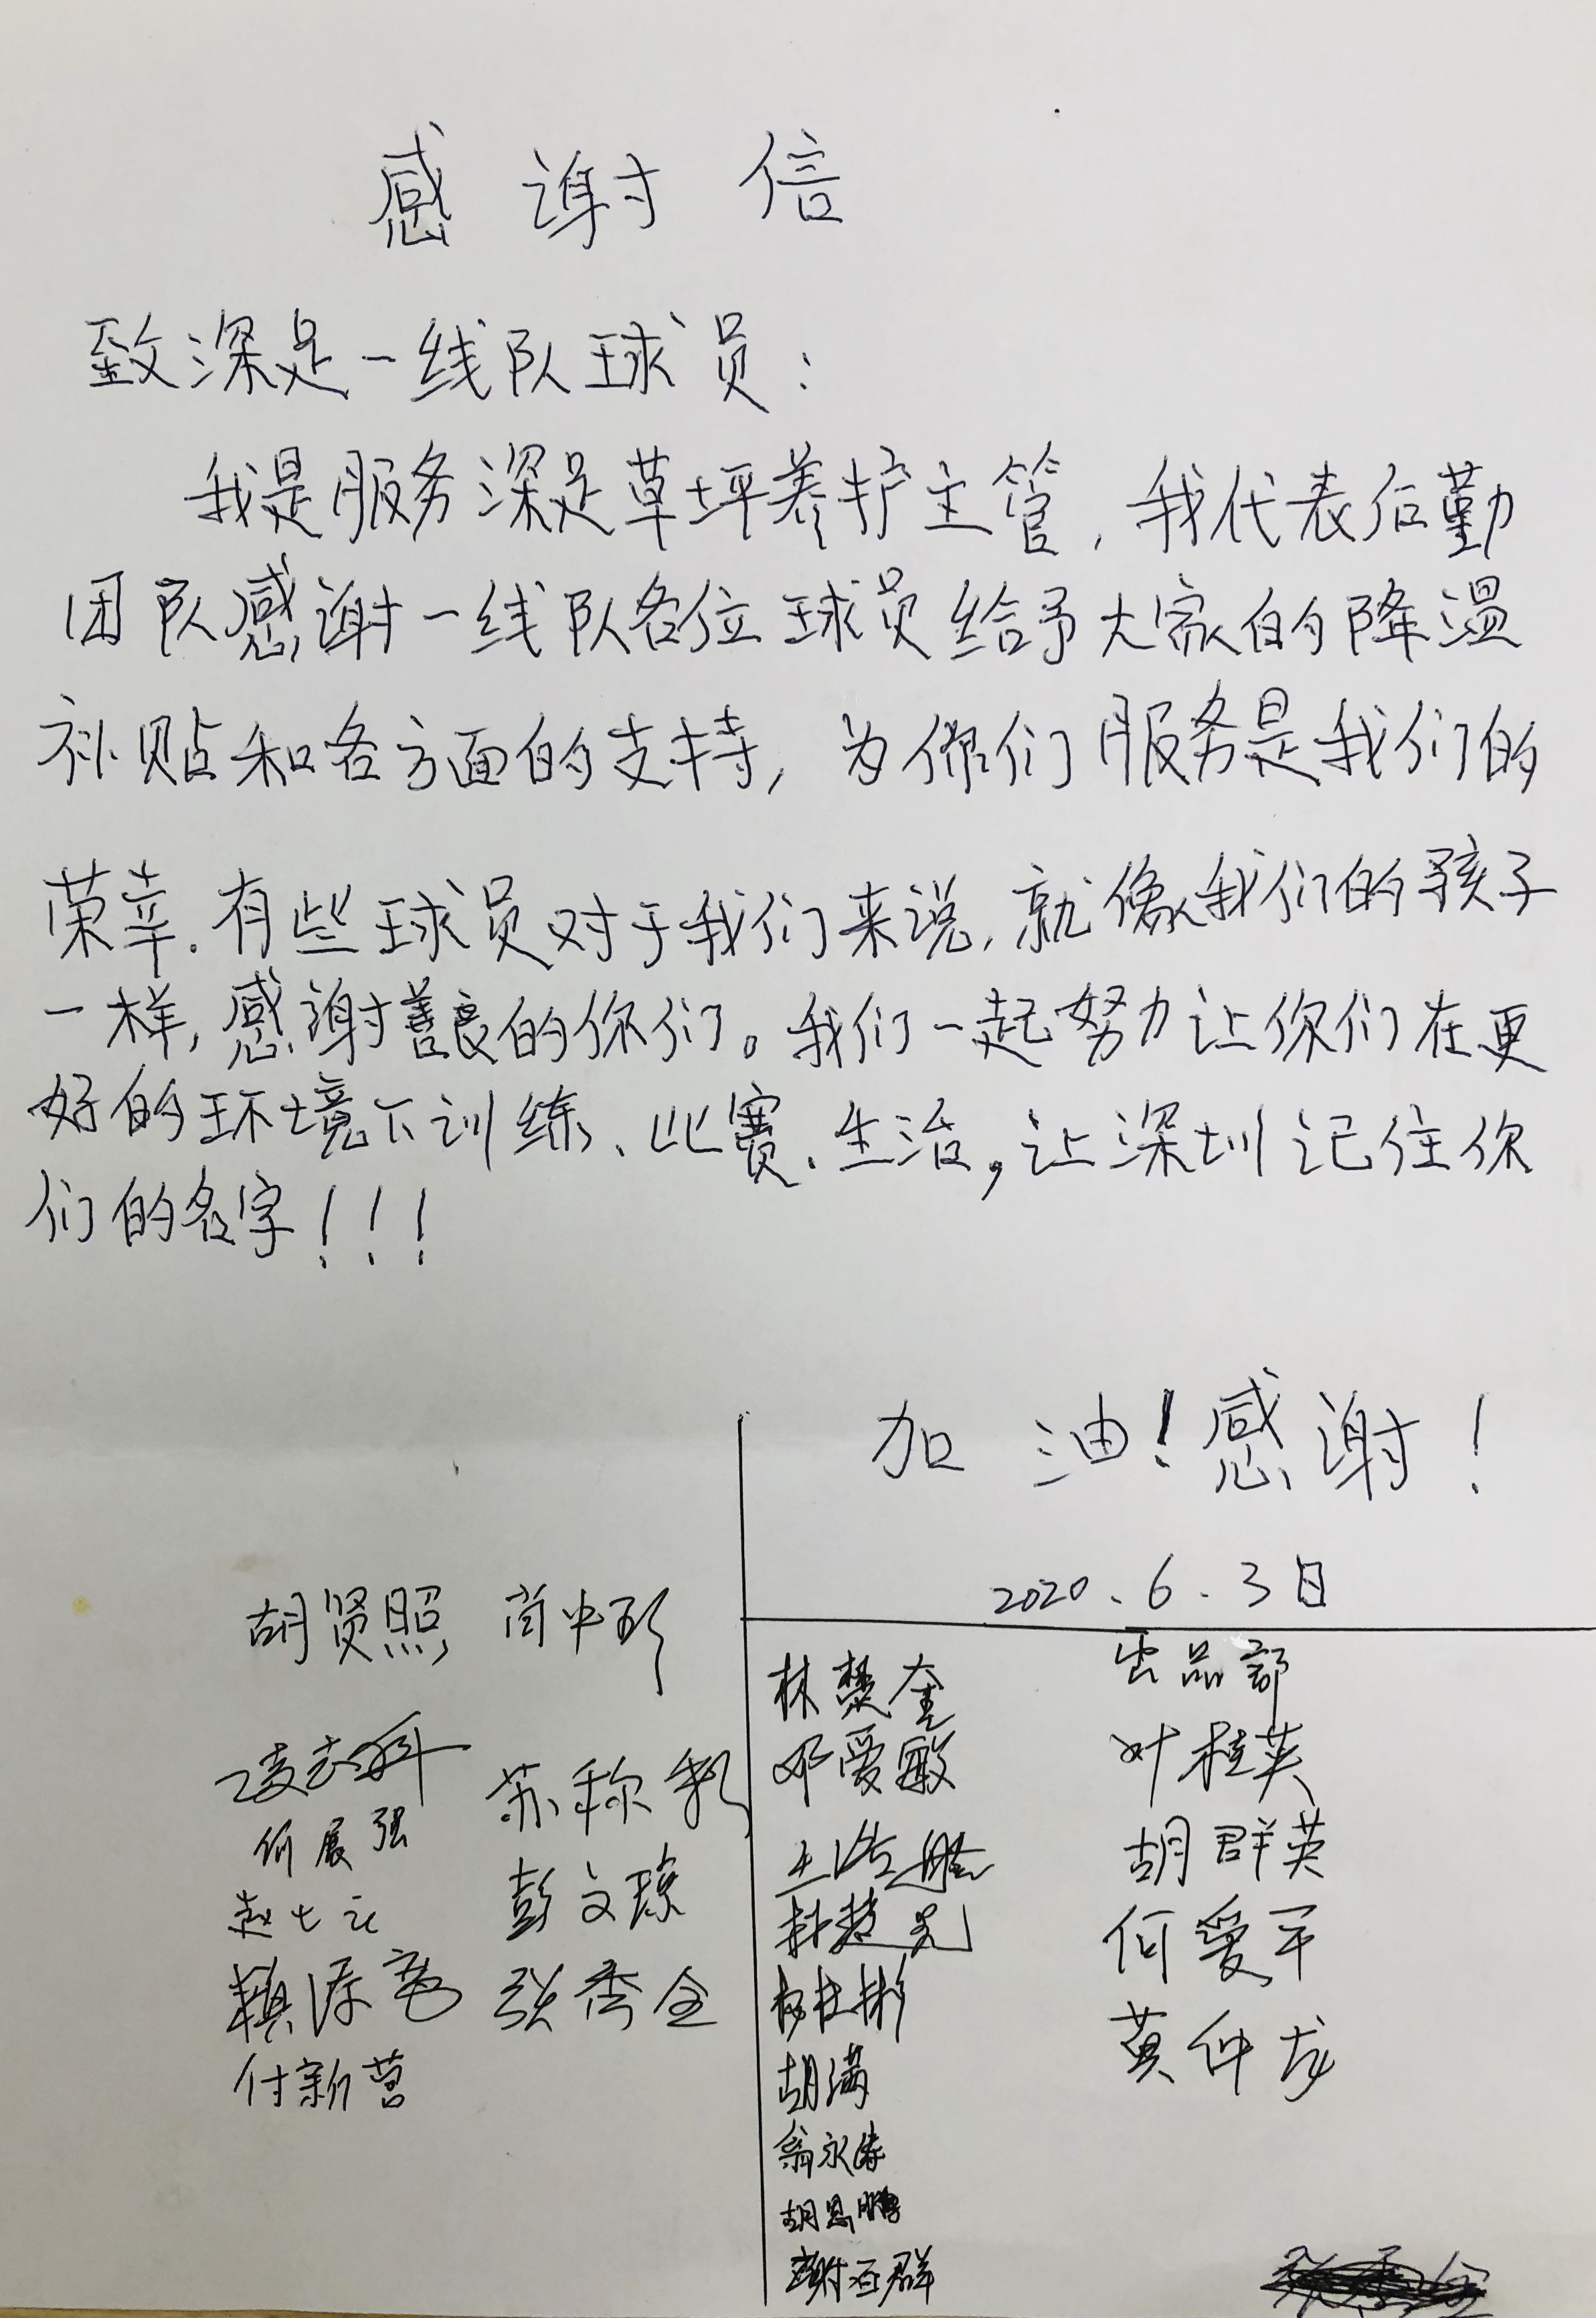 感谢信
致深足一线队球员：
我是服务深足草坪养护主管，我代表后勤
团队感谢一线队各位球员给予大家的降温
补贴和各方面的支持，为你们服务是我们的
荣幸.有些球员对于我们来说，就像我们的孩子
一样，感谢善良的你们。我们一起努力让你们在更
好的环境下训练、比赛、生活，让深圳记住你
们的名字！！！
加油！感谢！
2020.6.3日
胡贤照
苏称
何展强
彭文琼
张秀全
付新营
林楚奎
邓爱敏
胡满
翁永涛
胡恩鹏
谢石群
出品部
叶桂英
胡群英
何爱平
黄仲龙